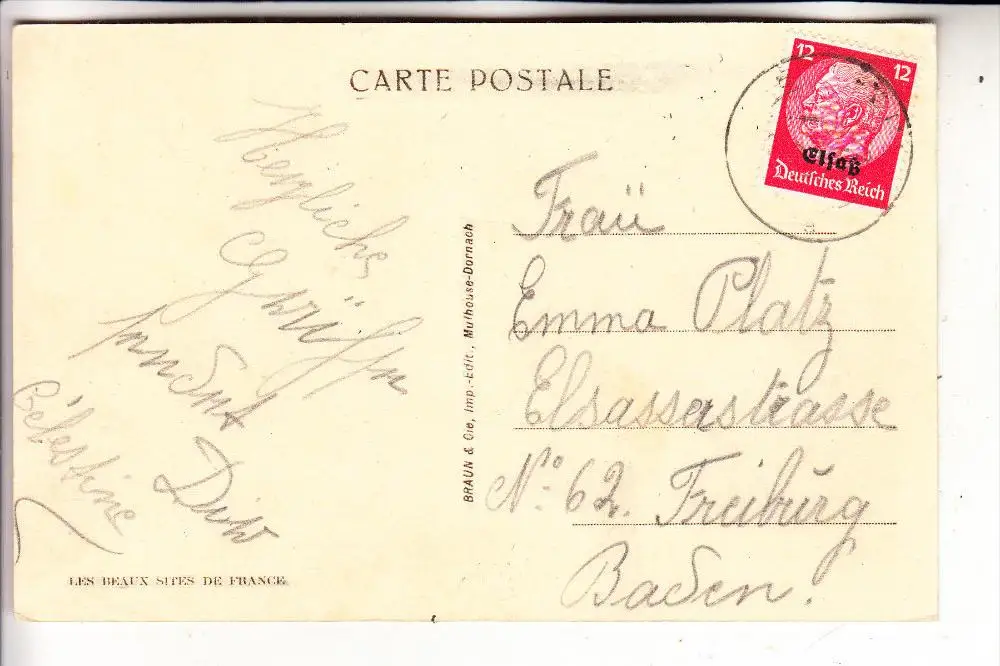 CARTE POSTALE
12 12
Elsaß
Deutsches Reich
Herzliche
Grüße
sendet
Dein
Célestine
LES BEAUX SITES DE FRANCE
BRAUN & Cie, Imp.-Edit., Mulhouse-Dornach
Fraü
Emma Platz
Elsasserstrasse
No. 62. Freibürg
Baden.